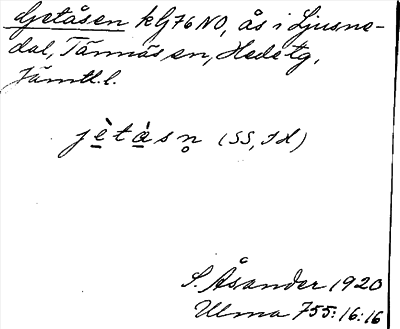 Getåsen kG76NO, ås i Ljusne-
dal, Tännäs sn, Hede tg,
Jämtl. l.
jètàsn̥ (SS, JH)
S. Åsander 1920
Ulma 755:16:16